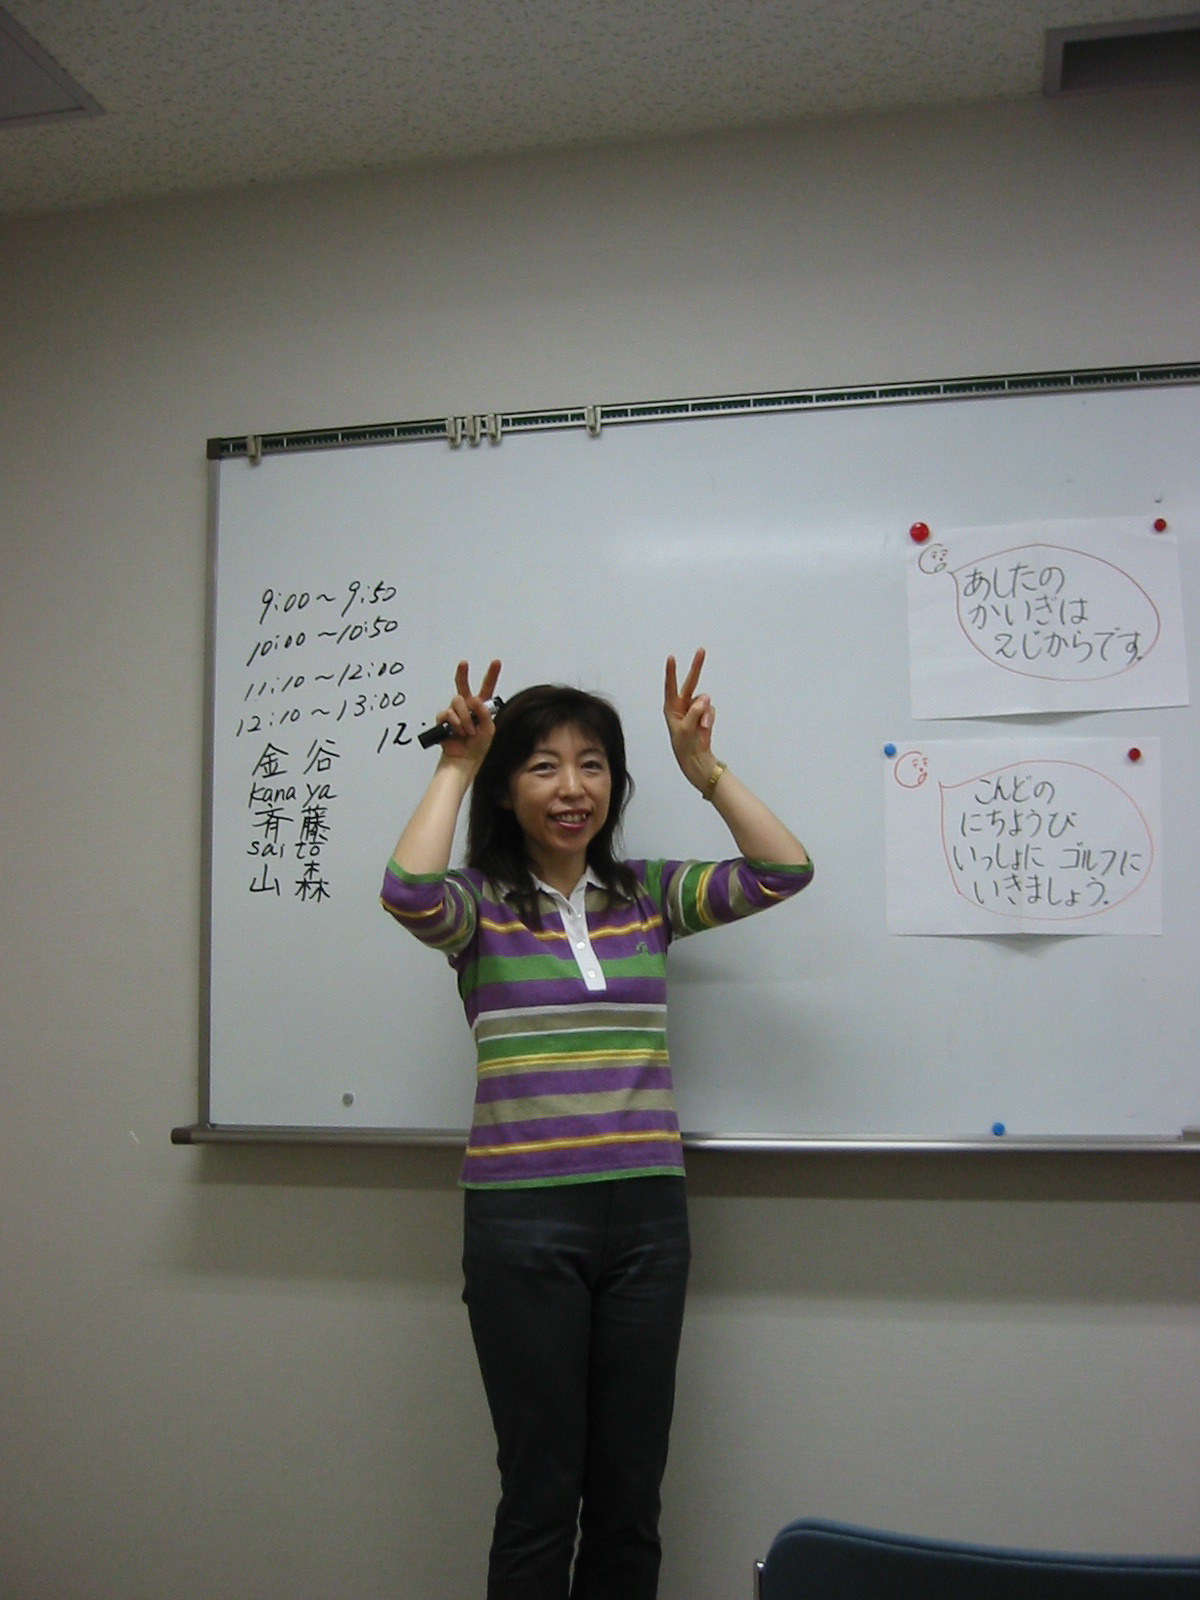 9:00～9:50
10:00～10:50
11:10～12:00
12:10～13:00
12:
金谷
kana ya
斉藤
sai tō
山森
あしたの
かいぎは
2じからです。
こんどの
にちようび
いっしょに ゴルフに
いきましょう。